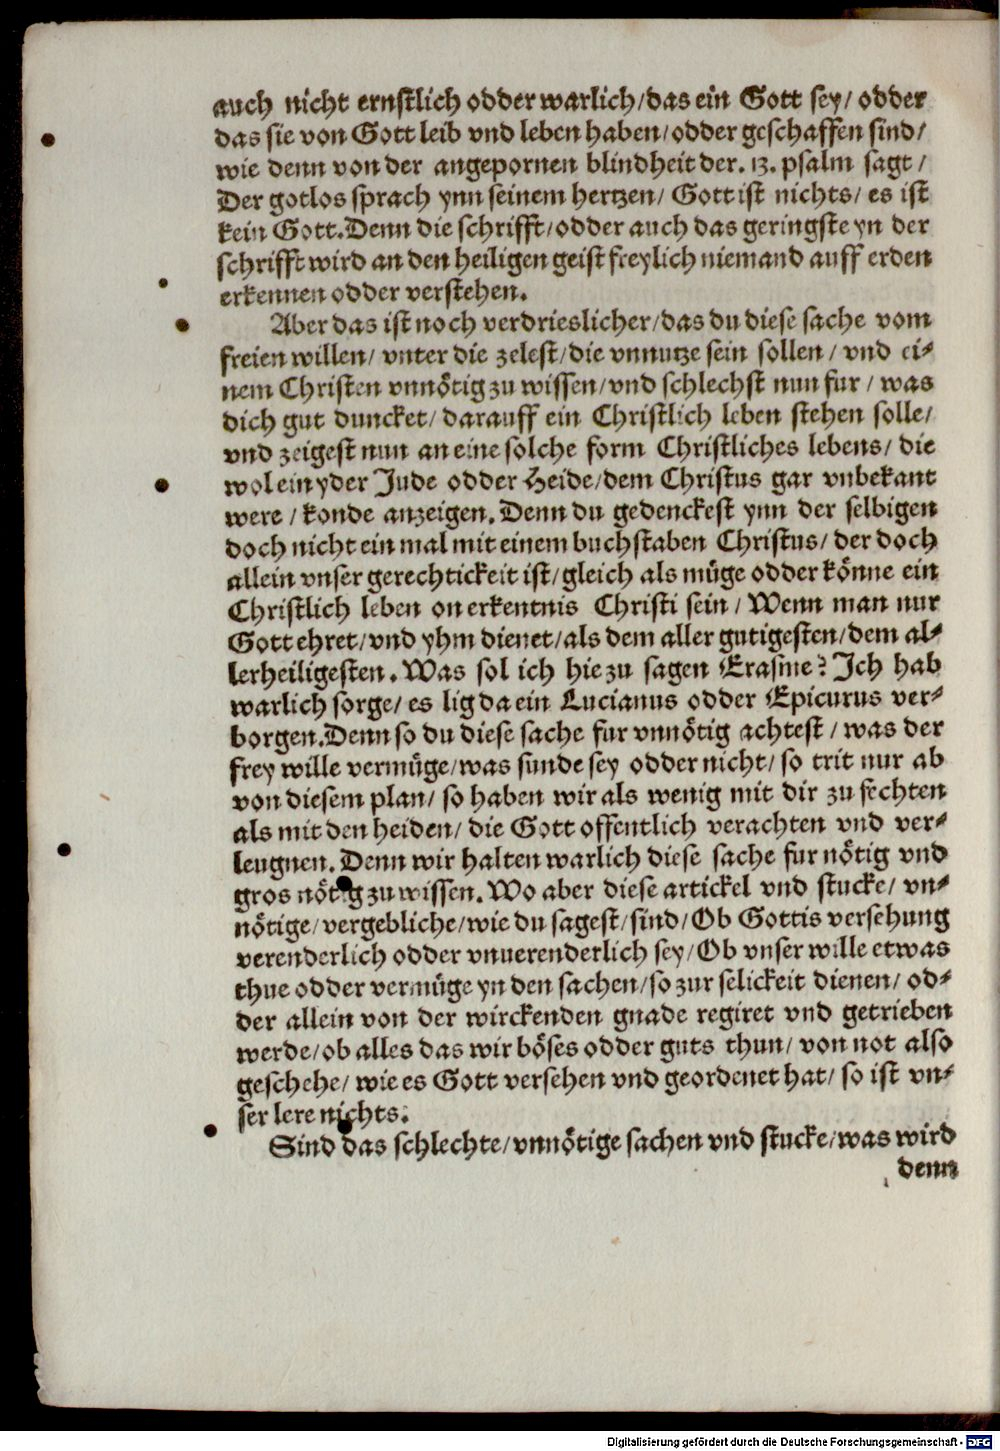 auch nicht ernstlich odder warlich/das ein Gott sey/ odder
das sie von Gott leib vnd leben haben/odder geschaffen sind/
wie denn von der angepornen blindheit der. 13. psalm sagt /
Der gotlos sprach ynn seinem hertzen/ Gott ist nichts/ es ist
kein Gott.Denn die schrifft/odder auch das geringste yn der
schrifft wird an den heiligen geist freylich niemand auff erden
erkennen odder verstehen.
Aber das ist noch verdrieslicher/das du diese sache vom
freien willen/ vnter die zelest/die vnnutze sein sollen/ vnd ei-
nem Christen vnnötig zu wissen/vnd schlechst nun fur / was
dich gut duncket/ darauff ein Christlich leben stehen solle/
vnd zeigest nun an eine solche form Christliches lebens/ die
wol ein yder Jude odder Heide/dem Christus gar vnbekant
were / konde anzeigen. Denn du gedenckest ynn der selbigen
doch nicht ein mal mit einem buchstaben Christus/ der doch
allein vnser gerechtickeit ist/gleich als müge odder könne ein
Christlich leben on erkentnis Christi sein / Wenn man nur
Gott ehret/vnd yhm dienet/als dem aller gutigesten/dem al-
lerheiligesten. Was sol ich hie zu sagen Erasme? Ich hab
warlich sorge/ es lig da ein Lucianus odder Epicurus ver-
borgen.Denn so du diese sache fur vnnötig achtest / was der
frey wille vermüge/was sunde sey odder nicht/ so trit nur ab
von diesem plan/ so haben wir als wenig mit dir zu fechten
als mit den heiden/ die Gott offentlich verachten vnd ver-
leugnen. Denn wir halten warlich diese sache fur nötig vnd
gros nötig zu wissen. Wo aber diese artickel vnd stucke/ vn-
nötige/vergebliche/wie du sagest/sind/Ob Gottis versehung
verenderlich odder vnuerenderlich sey/Ob vnser wille etwas
thue odder vermüge yn den sachen/so zur selickeit dienen/ od-
der allein von der wirckenden gnade regiret vnd getrieben
werde/ob alles das wir böses odder guts thun/ von not also
geschehe/ wie es Gott versehen vnd geordenet hat/ so ist vn-
ser lere nichts.
Sind das schlechte/vnnötige sachen vnd stucke/was wird
denn
Digitalisierung gefördert durch die Deutsche Forschungsgemeinschaft - DFG